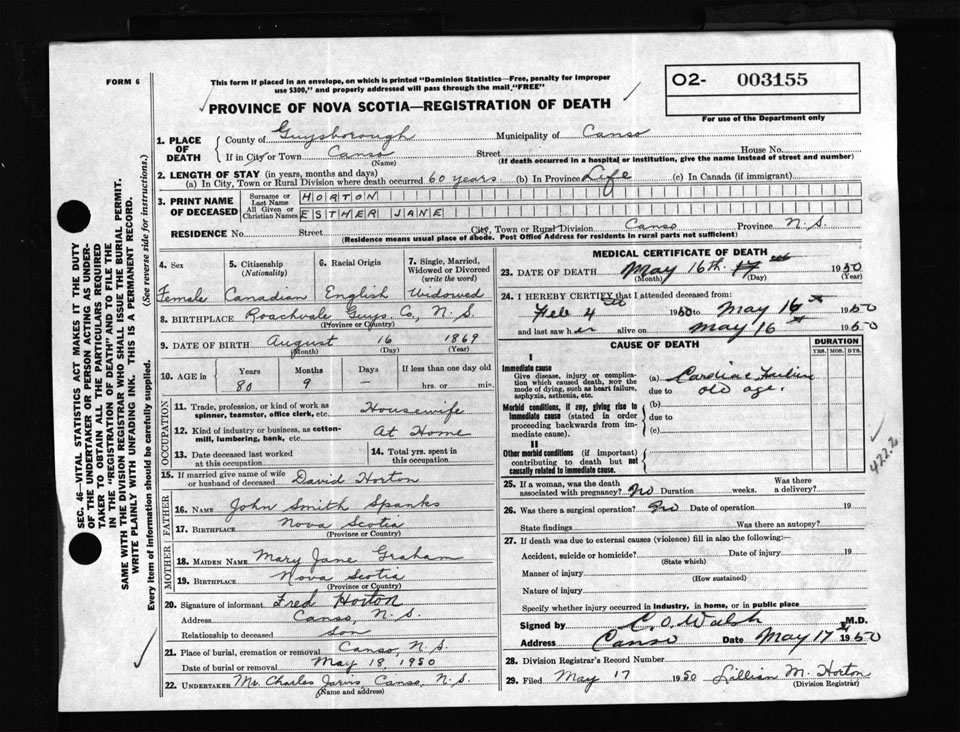 FORM 6
This form if placed in an envelope, on which is printed "Dominion Statistics—Free, penalty for improper
use $300," and properly addressed will pass through the mail "FREE"
O2- 003155
For use of the Department only
PROVINCE OF NOVA SCOTIA—REGISTRATION OF DEATH
1. PLACE OF DEATH { County of Guysborough Municipality of Canso
If in City or Town Canso (Name) Street House No.
(If death occurred in a hospital or institution, give the name instead of street and number)
2. LENGTH OF STAY (in years, months and days)
(a) In City, Town or Rural Division where death occurred 60 years. (b) In Province Life (c) In Canada (if immigrant)
3. PRINT NAME OF DECEASED { Surname or Last Name HORTON
All Given or Christian Names ESTHER JANE
RESIDENCE No. Street City, Town or Rural Division Canso Province N.S.
(Residence means usual place of abode. Post Office Address for residents in rural parts not sufficient)
4. Sex Female
5. Citizenship (Nationality) Canadian
6. Racial Origin English
7. Single, Married, Widowed or Divorced (write the word) Widowed
8. BIRTHPLACE Roachvale Guys. Co., N.S.
(Province or Country)
9. DATE OF BIRTH August 16 1869
(Month) (Day) (Year)
10. AGE in Years 80 Months 9 Days — If less than one day old hrs. or min.
OCCUPATION
11. Trade, profession, or kind of work as spinner, teamster, office clerk, etc. Housewife
12. Kind of industry or business, as cotton-mill, lumbering, bank, etc. At Home
13. Date deceased last worked at this occupation
14. Total yrs. spent in this occupation
15. If married give name of wife or husband of deceased David Horton
FATHER
16. NAME John Smith Spanks
17. BIRTHPLACE Nova Scotia
(Province or Country)
MOTHER
18. MAIDEN NAME Mary Jane Graham
19. BIRTHPLACE Nova Scotia
(Province or Country)
20. Signature of informant Fred Horton
Address Canso, N.S.
Relationship to deceased Son
21. Place of burial, cremation or removal Canso, N.S.
Date of burial or removal May 18, 1950
22. UNDERTAKER Mr. Charles Jarvis, Canso, N.S.
(Name and address)
MEDICAL CERTIFICATE OF DEATH
23. DATE OF DEATH May 16th 17 1950
(Month) (Day) (Year)
24. I HEREBY CERTIFY that I attended deceased from:
Feb 4 1950 to May 16 1950
and last saw her alive on May 16 1950
CAUSE OF DEATH
DURATION
YRS. MOS. DYS.
I
Immediate cause
Give disease, injury or complication which caused death, NOT the mode of dying, such as heart failure, asphyxia, asthenia, etc.
(a) Cardiac Failure
due to old age.
Morbid conditions, if any, giving rise to immediate cause (stated in order proceeding backwards from immediate cause)
(b)
due to
(c)
II
Other morbid conditions (if important) contributing to death but not causally related to immediate cause.
422.2
25. If a woman, was the death associated with pregnancy? No Duration weeks. Was there a delivery?
26. Was there a surgical operation? No Date of operation 19
State findings Was there an autopsy?
27. If death was due to external causes (violence) fill in also the following:—
Accident, suicide or homicide? Date of injury 19
(State which)
Manner of injury
(How sustained)
Nature of injury
Specify whether injury occurred in industry, in home, or in public place
Signed by C. O. Walsh M.D.
Address Canso Date May 17 1950
28. Division Registrar's Record Number
29. Filed May 17 1950 Lillian M. Horton
(Division Registrar)
SEC. 46—VITAL STATISTICS ACT MAKES IT THE DUTY
OF THE UNDERTAKER OR PERSON ACTING AS UNDER-
TAKER TO OBTAIN ALL THE PARTICULARS REQUIRED
IN THE "REGISTRATION OF DEATH" AND TO FILE THE
SAME WITH THE DIVISION REGISTRAR WHO SHALL ISSUE THE BURIAL PERMIT.
WRITE PLAINLY WITH UNFADING INK. THIS IS A PERMANENT RECORD.
Every item of information should be carefully supplied. (See reverse side for instructions.)